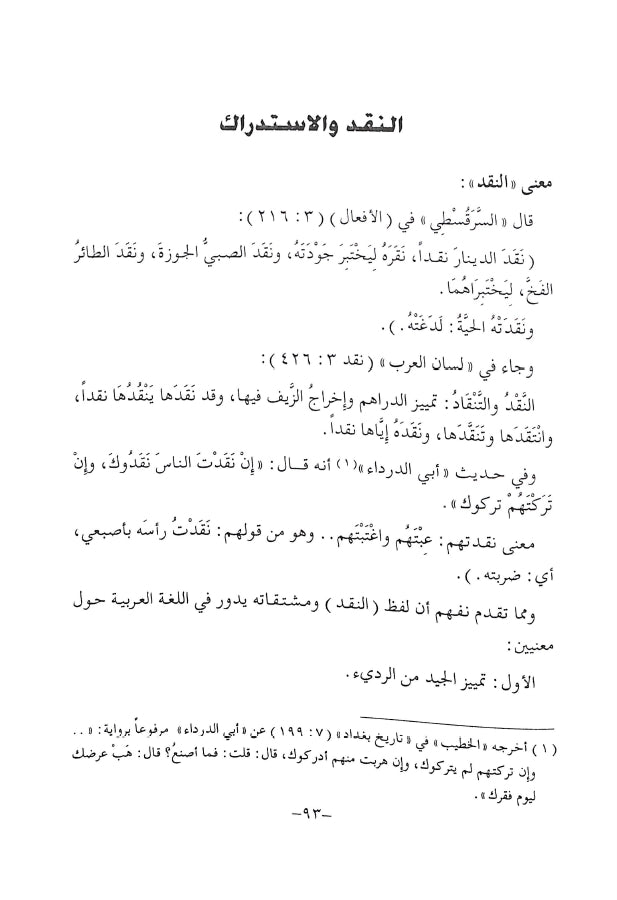 النقد والاستدراك
معنى «النقد»:
قال «السَّرَقُسْطِي» في (الأفعال) (٣: ٢١٦):
(نَقَدَ الدينارَ نقداً، نَقَرَهُ لِيَخْتَبِرَ جَوْدَتَهُ، ونَقَدَ الصبيُّ الجوزةَ، ونَقَدَ الطائرُ
الفَخَّ، لِيَخْتَبِرَاهُمَا.
ونَقَدَتْهُ الحيَّةُ: لَدَغَتْهُ.).
وجاء في «لسان العرب» (نقد ٣: ٤٢٦):
النَّقْدُ والتَّنْقَادُ: تمييز الدراهم وإخراجُ الزَّيف فيها، وقد نَقَدَها يَنْقُدُهَا نقداً،
وانْتَقَدَها وتَنَقَّدَها، ونَقَدَهُ إيَّاها نقداً.
وفي حديث «أبي الدرداء»(١) أنه قال: «إنْ نَقَدْتَ الناسَ نَقَدُوكَ، وإنْ
تَرَكْتَهُمْ تركوك».
معنى نقدتهم: عِبْتَهُم واغْتَبْتَهم.. وهو من قولهم: نَقَدْتُ رأسَه بأصبعي،
أي: ضربته.).
ومما تقدم نفهم أن لفظ (النقد) ومشتقاته يدور في اللغة العربية حول
معنيين:
الأول: تمييز الجيد من الرديء.
(١) أخرجه «الخطيب» في «تاريخ بغداد» (٧: ١٩٩) عن «أبي الدرداء» مرفوعاً برواية: «..
وإن تركتهم لم يتركوك، وإن هربت منهم أدركوك، قال: قلت: فما أصنعُ؟ قال: هَبْ عرضك
ليوم فقرك».
-٩٣-